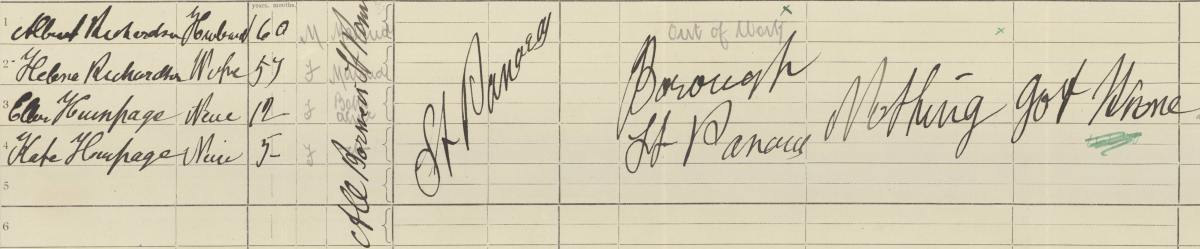 years. months.
1 Albert Richardson Husband 60 M Married
Out of Work
2 Helene Richardson Wife 57 F Married
3 Ellen Humpage Niece 12 F Both alive
4 Kate Humpage Niece 5 F
5
6
All Bornin St Pancras
St Pancras
Borough
St Pancras
Nothing got None